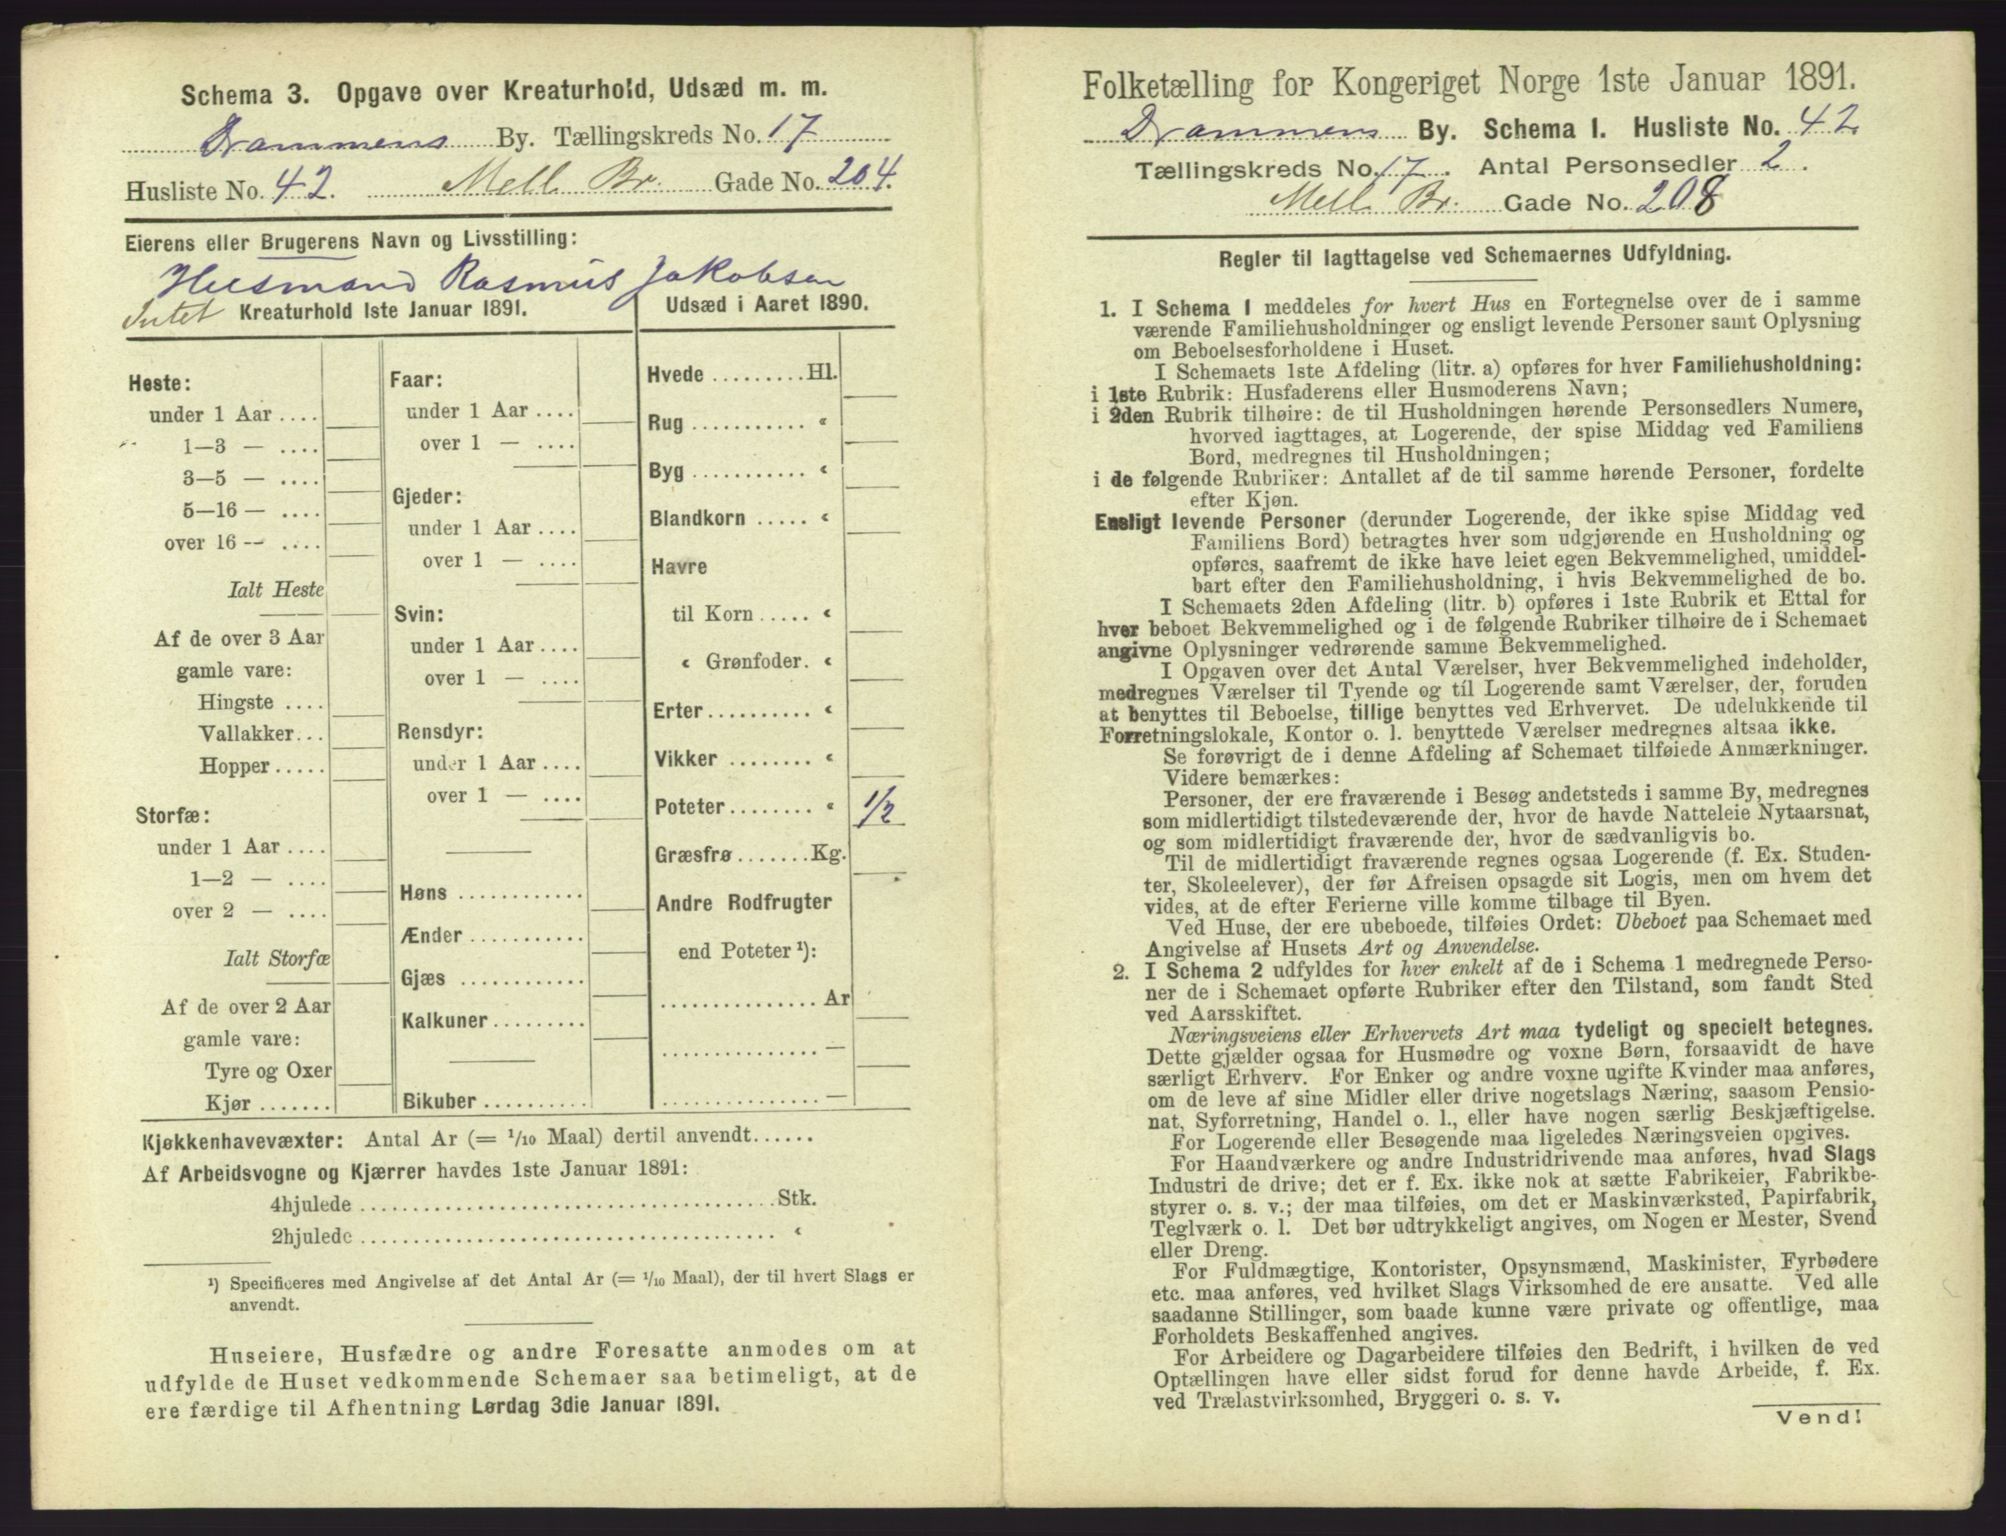 Schema 3. Opgave over Kreaturhold, Udsæd m. m.
Drammens By. Tællingskreds No. 17
Husliste No. 42. Mell. Br. Gade No. 204.
Eierens eller Brugerens Navn og Livsstilling:
Huusmand Rasmus Jakobsen
Intet Kreaturhold 1ste Januar 1891.
Heste:
under 1 Aar ....
1—3 — ....
3—5 — ....
5—16 — ....
over 16 — ....
Ialt Heste
Af de over 3 Aar
gamle vare:
Hingste ....
Vallakker...
Hopper.....
Storfæ:
under 1 Aar ....
1—2 — ....
over 2 — ....
Ialt Storfæ
Af de over 2 Aar
gamle vare:
Tyre og Oxer
Kjør.......
Faar:
under 1 Aar ....
over 1 — ....
Gjeder:
under 1 Aar ....
over 1 — ....
Svin:
under 1 Aar ....
over 1 — ....
Rensdyr:
under 1 Aar ....
over 1 — ....
Høns ............
Ænder...........
Gjæs ............
Kalkuner.........
Bikuber..........
Udsæd i Aaret 1890.
Hvede .........Hl.
Rug ........... «
Byg ........... «
Blandkorn ..... «
Havre
til Korn..... «
« Grønfoder. «
Erter.......... «
Vikker ........ «
Poteter........ « 1/2
Græsfrø.......Kg.
Andre Rodfrugter
end Poteter ¹):
...............Ar
............... —
............... —
Kjøkkenhavevæxter: Antal Ar (= 1/10 Maal) dertil anvendt......
Af Arbeidsvogne og Kjærrer havdes 1ste Januar 1891:
4hjulede ........................................Stk.
2hjulede ........................................ «
¹) Specificeres med Angivelse af det Antal Ar (= 1/10 Maal), der til hvert Slags er
anvendt.
Huseiere, Husfædre og andre Foresatte anmodes om at
udfylde de Huset vedkommende Schemaer saa betimeligt, at de
ere færdige til Afhentning Lørdag 3die Januar 1891.
Folketælling for Kongeriget Norge 1ste Januar 1891.
Drammens By. Schema I. Husliste No. 42
Tællingskreds No. 17. Antal Personsedler 2.
Mell. Br. Gade No. 208
Regler til Iagttagelse ved Schemaernes Udfyldning.
1. I Schema 1 meddeles for hvert Hus en Fortegnelse over de i samme
værende Familiehusholdninger og ensligt levende Personer samt Oplysning
om Beboelsesforholdene i Huset.
I Schemaets 1ste Afdeling (litr. a) opføres for hver Familiehusholdning:
i 1ste Rubrik: Husfaderens eller Husmoderens Navn;
i 2den Rubrik tilhøire: de til Husholdningen hørende Personsedlers Numere,
hvorved iagttages, at Logerende, der spise Middag ved Familiens
Bord, medregnes til Husholdningen;
i de følgende Rubriker: Antallet af de til samme hørende Personer, fordelte
efter Kjøn.
Ensligt levende Personer (derunder Logerende, der ikke spise Middag ved
Familiens Bord) betragtes hver som udgjørende en Husholdning og
opføres, saafremt de ikke have leiet egen Bekvemmelighed, umiddel-
bart efter den Familiehusholdning, i hvis Bekvemmelighed de bo.
I Schemaets 2den Afdeling (litr. b) opføres i 1ste Rubrik et Ettal for
hver beboet Bekvemmelighed og i de følgende Rubriker tilhøire de i Schemaet
angivne Oplysninger vedrørende samme Bekvemmelighed.
I Opgaven over det Antal Værelser, hver Bekvemmelighed indeholder,
medregnes Værelser til Tyende og til Logerende samt Værelser, der, foruden
at benyttes til Beboelse, tillige benyttes ved Erhvervet. De udelukkende til
Forretningslokale, Kontor o. l. benyttede Værelser medregnes altsaa ikke.
Se forøvrigt de i denne Afdeling af Schemaet tilføiede Anmærkninger.
Videre bemærkes:
Personer, der ere fraværende i Besøg andetsteds i samme By, medregnes
som midlertidigt tilstedeværende der, hvor de havde Natteleie Nytaarsnat,
og som midlertidigt fraværende der, hvor de sædvanligvis bo.
Til de midlertidigt fraværende regnes ogsaa Logerende (f. Ex. Studen-
ter, Skoleelever), der før Afreisen opsagde sit Logis, men om hvem det
vides, at de efter Ferierne ville komme tilbage til Byen.
Ved Huse, der ere ubeboede, tilføies Ordet: Ubeboet paa Schemaet med
Angivelse af Husets Art og Anvendelse.
2. I Schema 2 udfyldes for hver enkelt af de i Schema 1 medregnede Perso-
ner de i Schemaet opførte Rubriker efter den Tilstand, som fandt Sted
ved Aarsskiftet.
Næringsveiens eller Erhvervets Art maa tydeligt og specielt betegnes.
Dette gjælder ogsaa for Husmødre og voxne Børn, forsaavidt de have
særligt Erhverv. For Enker og andre voxne ugifte Kvinder maa anføres,
om de leve af sine Midler eller drive nogetslags Næring, saasom Pensio-
nat, Syforretning, Handel o. l., eller have nogen særlig Beskjæftigelse.
For Logerende eller Besøgende maa ligeledes Næringsveien opgives.
For Haandværkere og andre Industridrivende maa anføres, hvad Slags
Industri de drive; det er f. Ex. ikke nok at sætte Fabrikeier, Fabrikbe-
styrer o. s. v.; der maa tilføies, om det er Maskinværksted, Papirfabrik,
Teglværk o. l. Det bør udtrykkeligt angives, om Nogen er Mester, Svend
eller Dreng.
For Fuldmægtige, Kontorister, Opsynsmænd, Maskinister, Fyrbødere
etc. maa anføres, ved hvilket Slags Virksomhed de ere ansatte. Ved alle
saadanne Stillinger, som baade kunne være private og offentlige, maa
Forholdets Beskaffenhed angives.
For Arbeidere og Dagarbeidere tilføies den Bedrift, i hvilken de ved
Optællingen have eller sidst forud for denne havde Arbeide, f. Ex.
ved Trælastvirksomhed, Bryggeri o. s. v.
Vend!